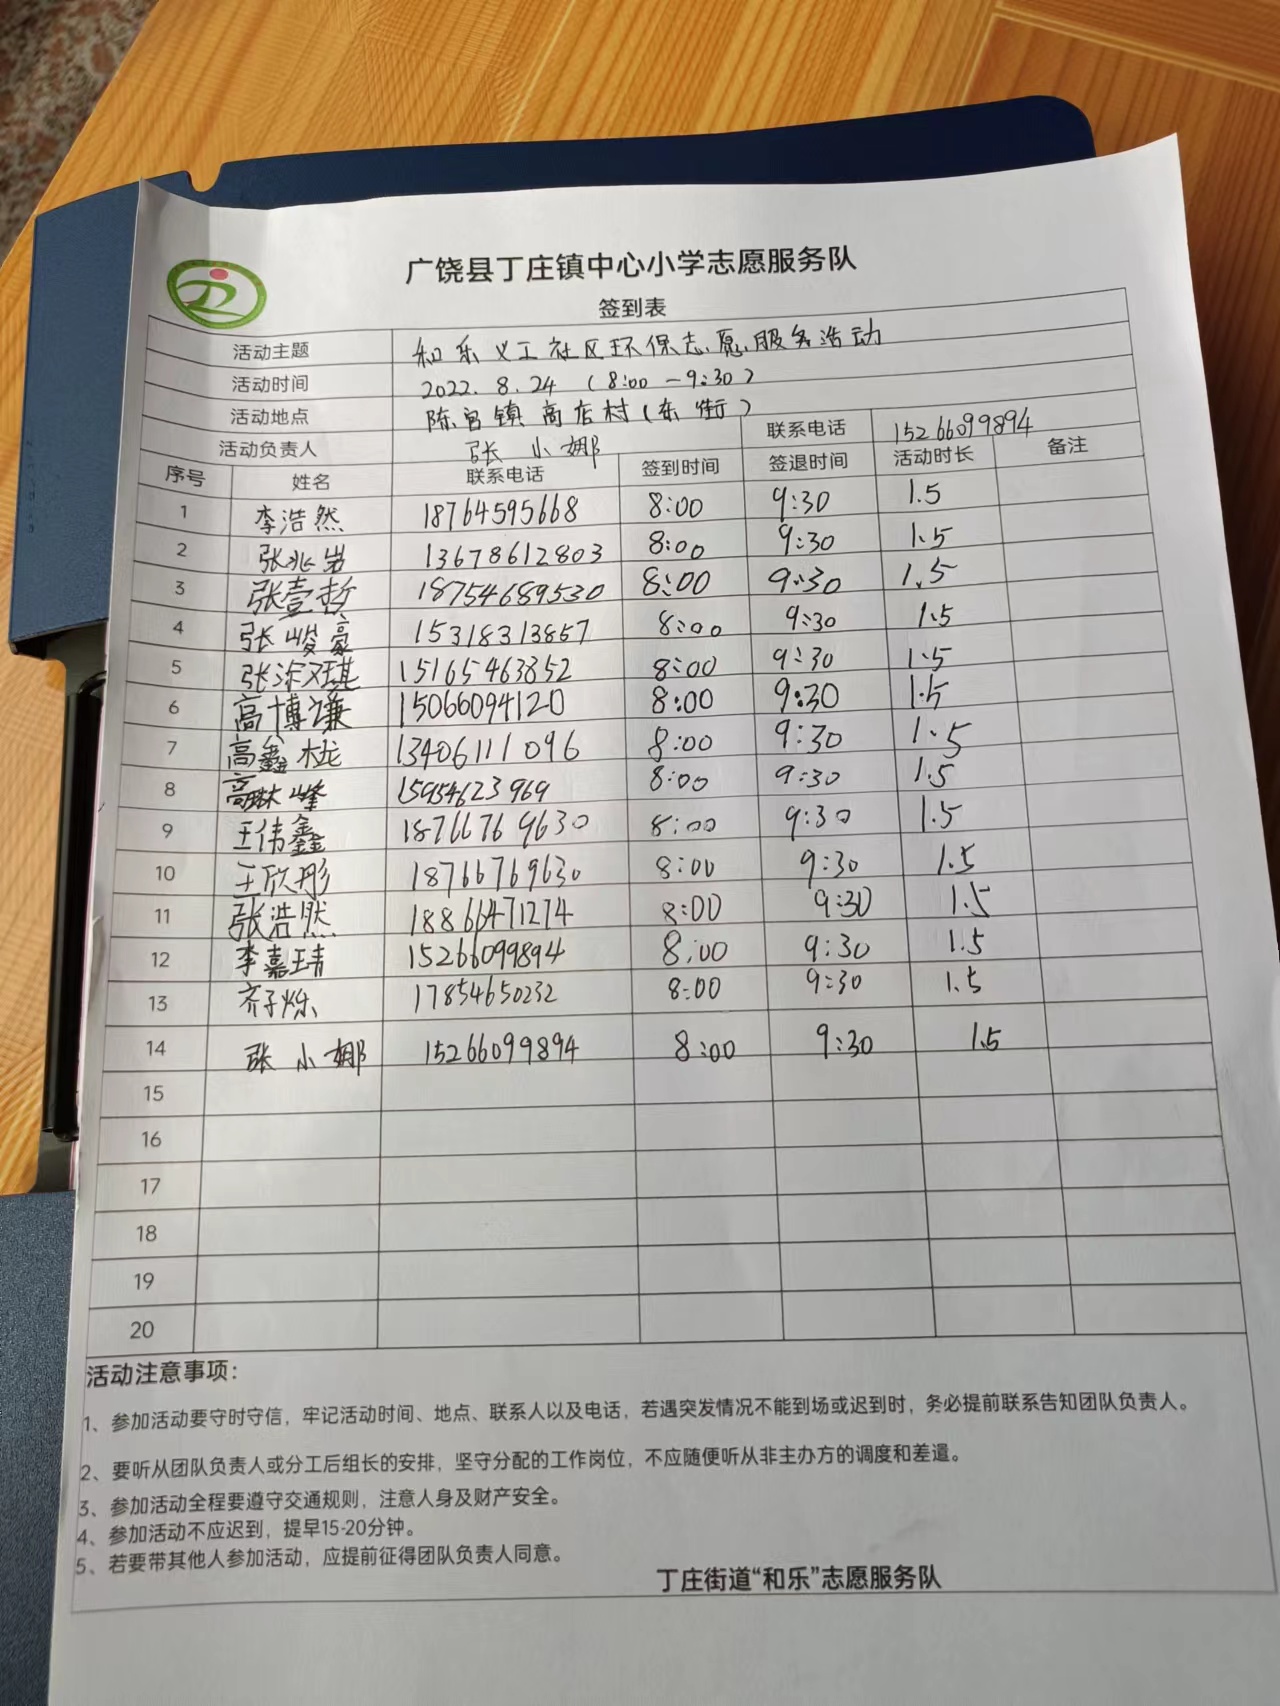 广饶县丁庄镇中心小学志愿服务队
签到表
活动主题 和乐义工社区环保志愿服务活动
活动时间 2022.8.24（8:00-9:30）
活动地点 陈官镇高店村(东街)
活动负责人 张小娜 联系电话 15266099894
序号 姓名 联系电话 签到时间 签退时间 活动时长 备注
1 李浩然 18764595668 8:00 9:30 1.5
2 张兆岩 13678612803 8:00 9:30 1.5
3 张壹哲 18754689530 8:00 9:30 1.5
4 张峻豪 15318313857 8:00 9:30 1.5
5 15165463852 8:00 9:30 1.5
6 高博谦 15066094120 8:00 9:30 1.5
7 高鑫栊 13406111096 8:00 9:30 1.5
8 高琳峰 15954623969 8:00 9:30 1.5
9 王伟鑫 18766769630 8:00 9:30 1.5
10 王欣彤 18766769630 8:00 9:30 1.5
11 张浩然 18866471274 8:00 9:30 1.5
12 李嘉琦 15266099894 8:00 9:30 1.5
13 齐子烁 17854650232 8:00 9:30 1.5
14 张小娜 15266099894 8:00 9:30 1.5
15
16
17
18
19
20
活动注意事项：
1、参加活动要守时守信，牢记活动时间、地点、联系人以及电话，若遇突发情况不能到场或迟到时，务必提前联系告知团队负责人。
2、要听从团队负责人或分工后组长的安排，坚守分配的工作岗位，不应随便听从非主办方的调度和差遣。
3、参加活动全程要遵守交通规则，注意人身及财产安全。
4、参加活动不应迟到，提早15-20分钟。
5、若要带其他人参加活动，应提前征得团队负责人同意。
丁庄街道“和乐”志愿服务队